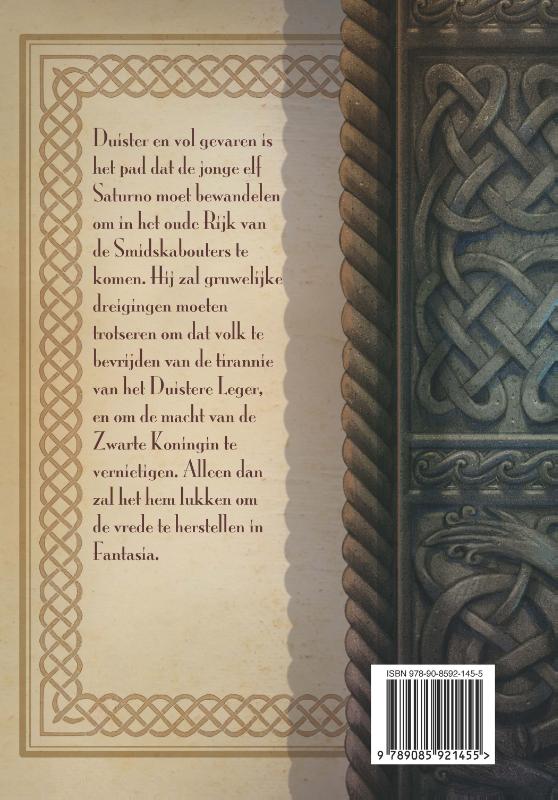 Duister en vol gevaren is
het pad dat de jonge elf
Saturno moet bewandelen
om in het oude Rijk van
de Smidskabouters te
komen. Hij zal gruwelijke
dreigingen moeten
trotseren om dat volk te
bevrijden van de tirannie
van het Duistere Leger,
en om de macht van de
Zwarte Koningin te
vernietigen. Alleen dan
zal het hem lukken om
de vrede te herstellen in
Fantasia.
ISBN 978-90-8592-145-5
9 789085 921455 >